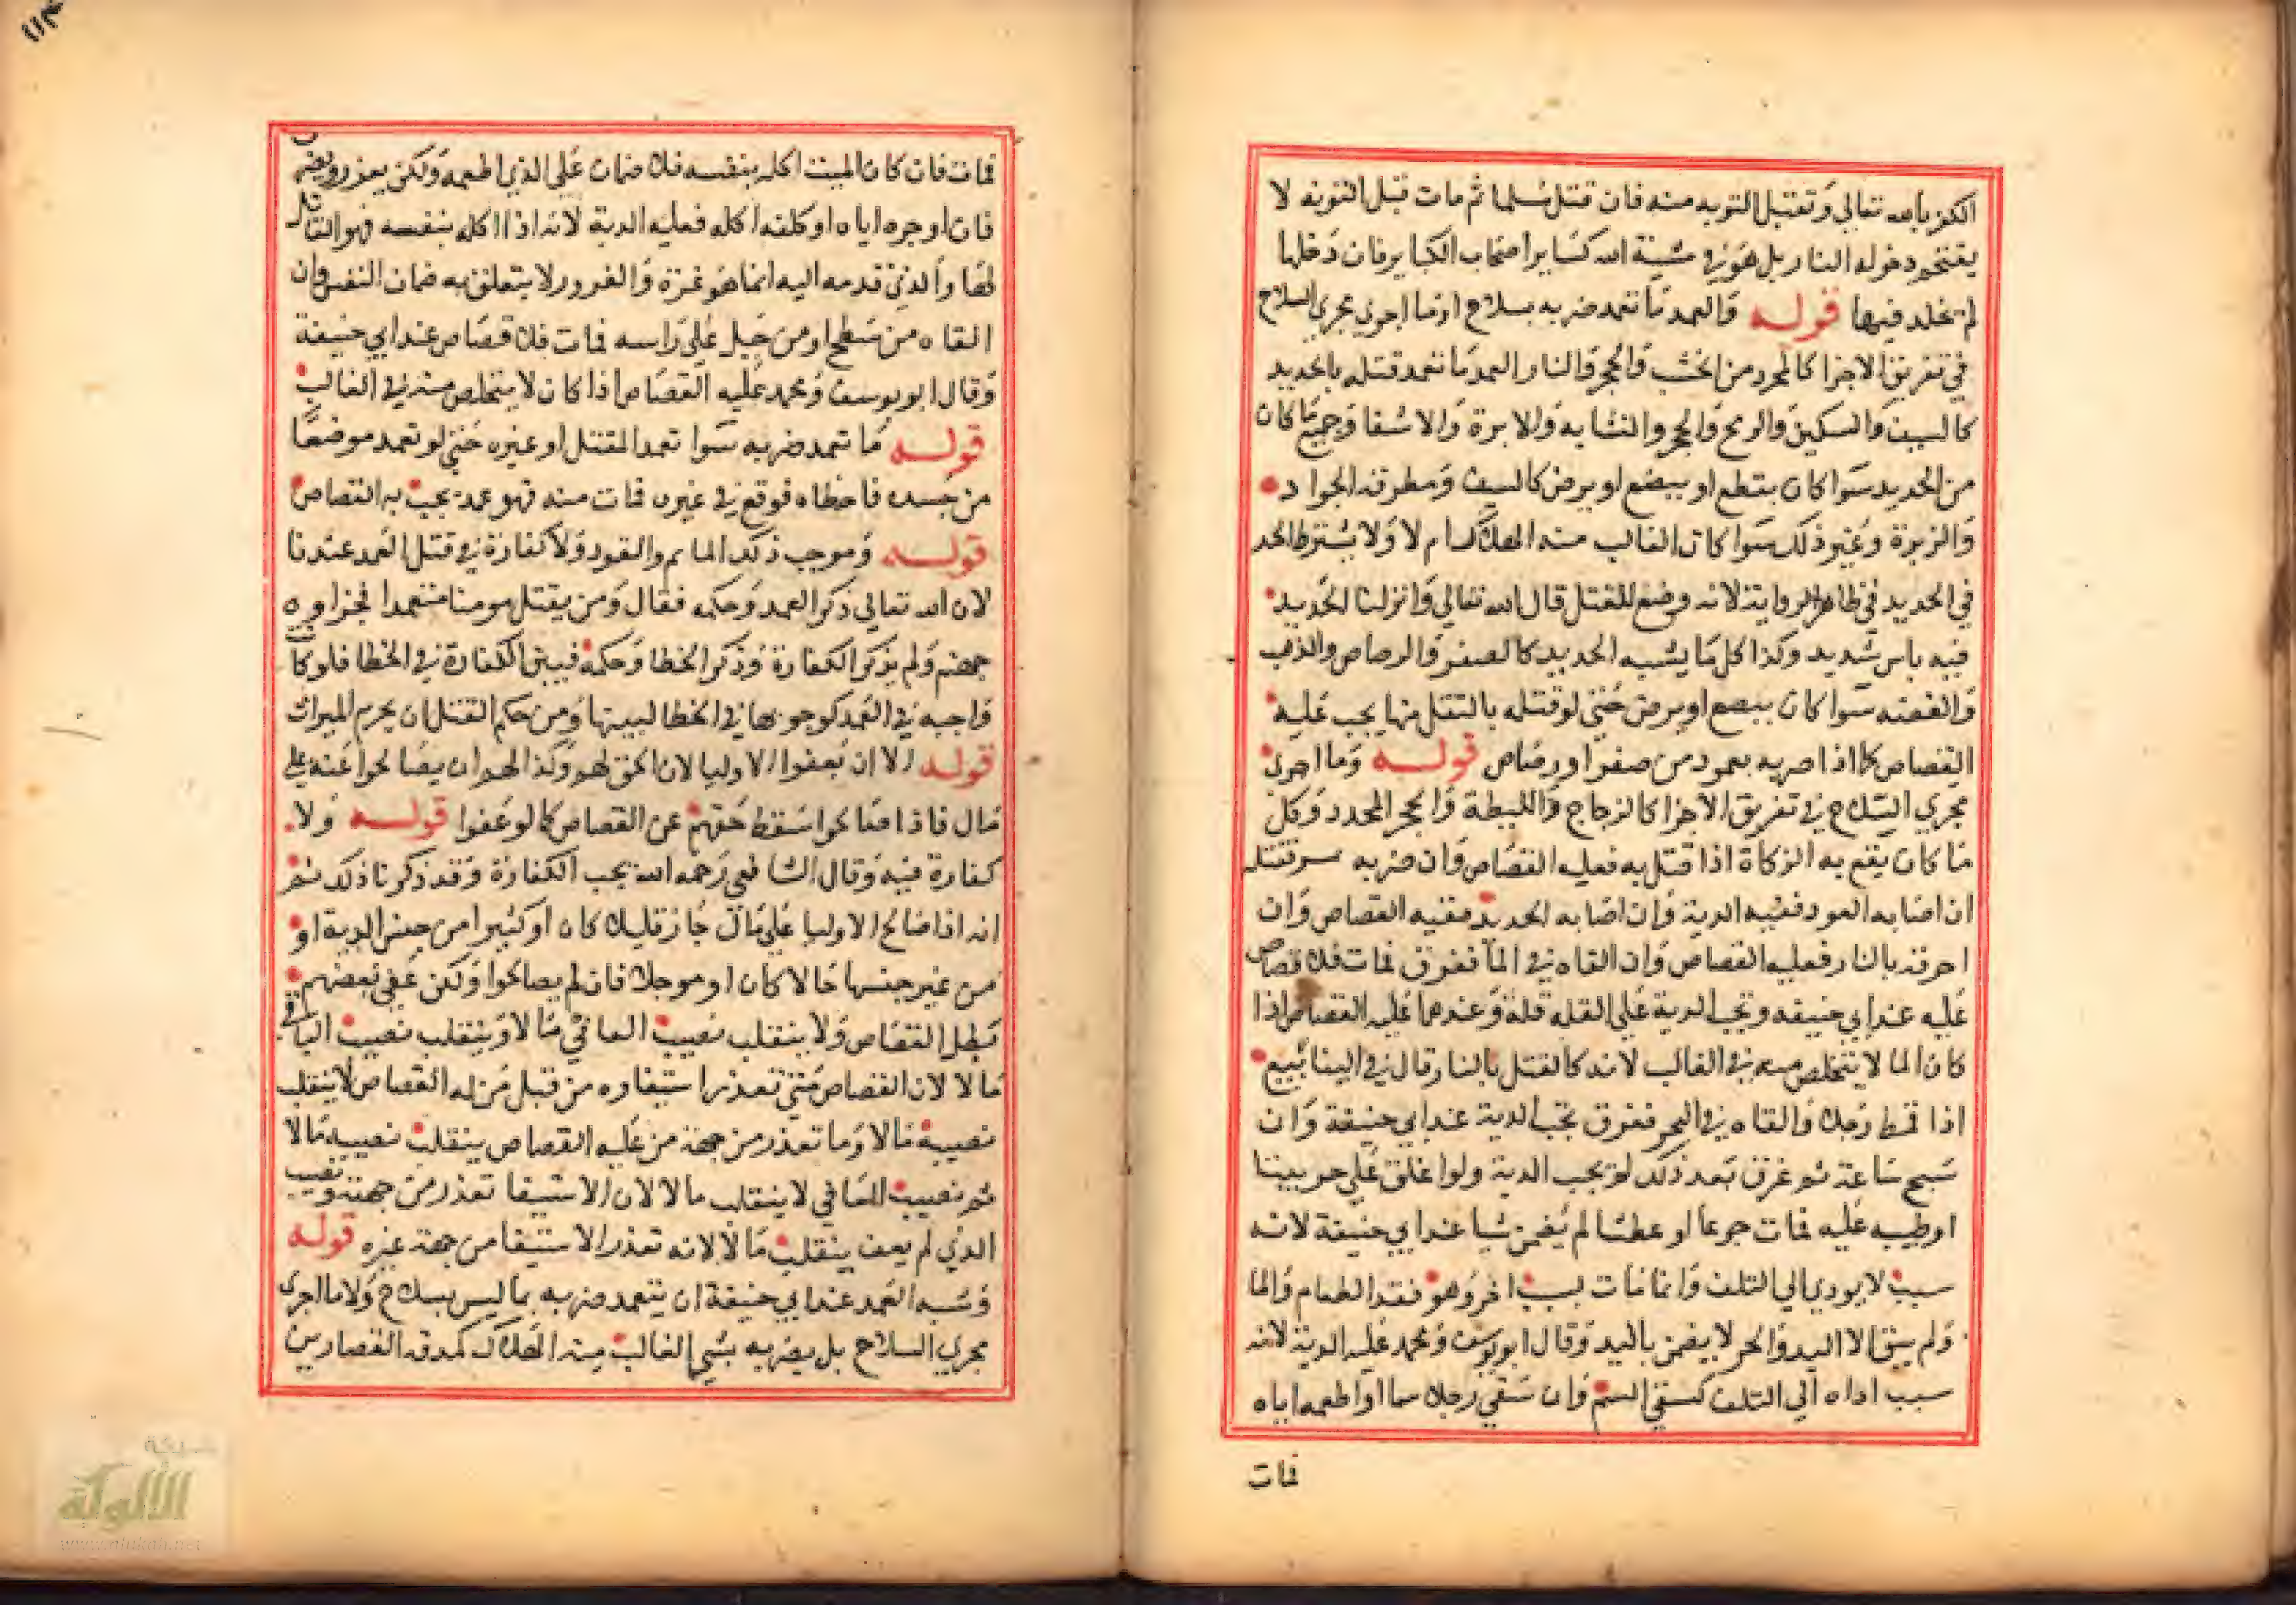 الكفر بالله تعالى وتقبل التوبة منه فان قتل مسلما ثم مات قبل التوبة لا
يتحتم دخوله النار بل هو في مشية الله كساير اصحاب الكباير فان دخلها
لم يخلد فيها قوله والعمد ما تعمد ضربه بسلاح او ما اجري مجري السلاح
في تفريق الاجزا كالمحدد من الخشب والحجر والنار العمد ما تعمد قتله بالحديد
كالسيف والسكين والرمح والخنجر والنشابه والابرة والاشفا وجميع ما كان
من الحديد سوا كان يقطع او يبضع او يرض كالسيف ومطرقة الحداد
والزبرة وغير ذلك سوا كان الغالب منه الهلاك ام لا ولا يشترط الحد
في الحديد في ظاهر الرواية لانه وضع للقتل قال الله تعالي وانزلنا الحديد
فيه باس شديد وكذا كل ما يشبه الحديد كالصفر والرصاص والذهب
والفضه سوا كان يبضع او يرض حتي لو قتله بالثقل منها يجب عليه
القصاص كما اذا ضربه بعمود من صفر او رصاص قوله وما اجري
مجري السلاح في تفريق الاجزا كالزجاج والليطة والحجر المحدد وكل
ما كان يقع به الزكاة اذا قتل به فعليه القصاص وان ضربه فقتله
ان اصابه العود ففيه الدية وان اصابه الحديد ففيه القصاص وان
احرقه بالنار فعليه القصاص وان القاه في الما فغرق فمات فلا قصاص
عليه عند ابي حنيفه وتجب الدية علي العاقلة وعندهما عليه القصاص اذا
كان الما لا يتخلص منه في الغالب لانه كالقتل بالنار قال في الينابيع
اذا قمط رجلا والقاه في البحر فغرق تجب الدية عند ابي حنيفة وان
سبح ساعة ثم غرق بعد ذلك لم يجب الدية ولو اغلق علي حر بيتا
او طينه عليه فمات جوعا او عطشا لم يضمن شيا عند ابي حنيفة لانه
سبب لا يودي الي التلف وانما مات بسبب اخر وهو فقد الطعام والما
ولم يبق الا اليد والحر لا يضمن باليد وقال ابو يوسف ومحمد عليه الدية لانه
سبب اداه الي التلف كسقي السم وان سقي رجلا سما او اطعمه اياه
فمات
١١٣
فمات فان كان الميت اكله بنفسه فلا ضمان علي الذي اطعمه ولكن يعزر ويضرب
فان اوجره اياه او كلفه اكله فعليه الدية لانه اذا اكله بنفسه فهو القاتل
لها والذي قدمه اليه انما هو غرة والغرور لا يتعلق به ضمان النفس وان
القاه من سطح او من جبل علي راسه فمات فلا قصاص عند ابي حنيفة
وقال ابو يوسف ومحمد عليه القصاص اذا كان لا يتخلص منه في الغالب
قوله ما تعمد ضربه سوا تعمد المقتل او غيره حتي لو تعمد موضعا
من جسده فاخطاه فوقع في غيره فمات منه فهو عمد يجب به القصاص
قوله وموجب ذلك الماثم والقود ولا كفارة في قتل العمد عندنا
لان الله تعالي ذكر العمد وحكمه فقال ومن يقتل مومنا متعمدا فجزاوه
جهنم ولم يذكر الكفارة وذكر الخطا وحكمه فبين الكفارة في الخطا فلو كانت
واجبه في العمد كوجوبها في الخطا لبينها ومن حكم القتل ان يحرم الميراث
قوله الا ان يعفوا الاوليا لان الحق لهم وكذا لهم ان يصالحوا عنه علي
مال فاذا صالحوا سقط حقهم عن القصاص كما لو عفوا قوله ولا
كفارة فيه وقال الشافعي رحمه الله يجب الكفارة وقد ذكرنا ذلك ثم
انه اذا صالح الاوليا علي مال جاز قليلا كان او كثيرا من جنس الدية او
من غير جنسها حالا كان او موجلا فان لم يصالحوا ولكن عفي بعضهم
بطل القصاص ولا ينقلب نصيب العافي مالا وينقلب نصيب الباقي
مالا لان القصاص متي تعذر استيفاوه من قبل من له القصاص لا ينقلب
نصيبه مالا وما تعذر من جهة من عليه القصاص ينقلب نصيبه مالا
ثم نصيب العافي لا ينقلب مالا لان الاستيفا تعذر من جهته ونصيب
الذي لم يعف ينقلب مالا لانه تعذر الاستيفا من جهة غيره قوله
وشبه العمد عند ابي حنيفة ان يتعمد ضربه بما ليس بسلاح ولا ما اجري
مجري السلاح بل يضربه بشي الغالب منه الهلاك كمدقة القصارين
شبكة
الألوكة
www.alukah.net